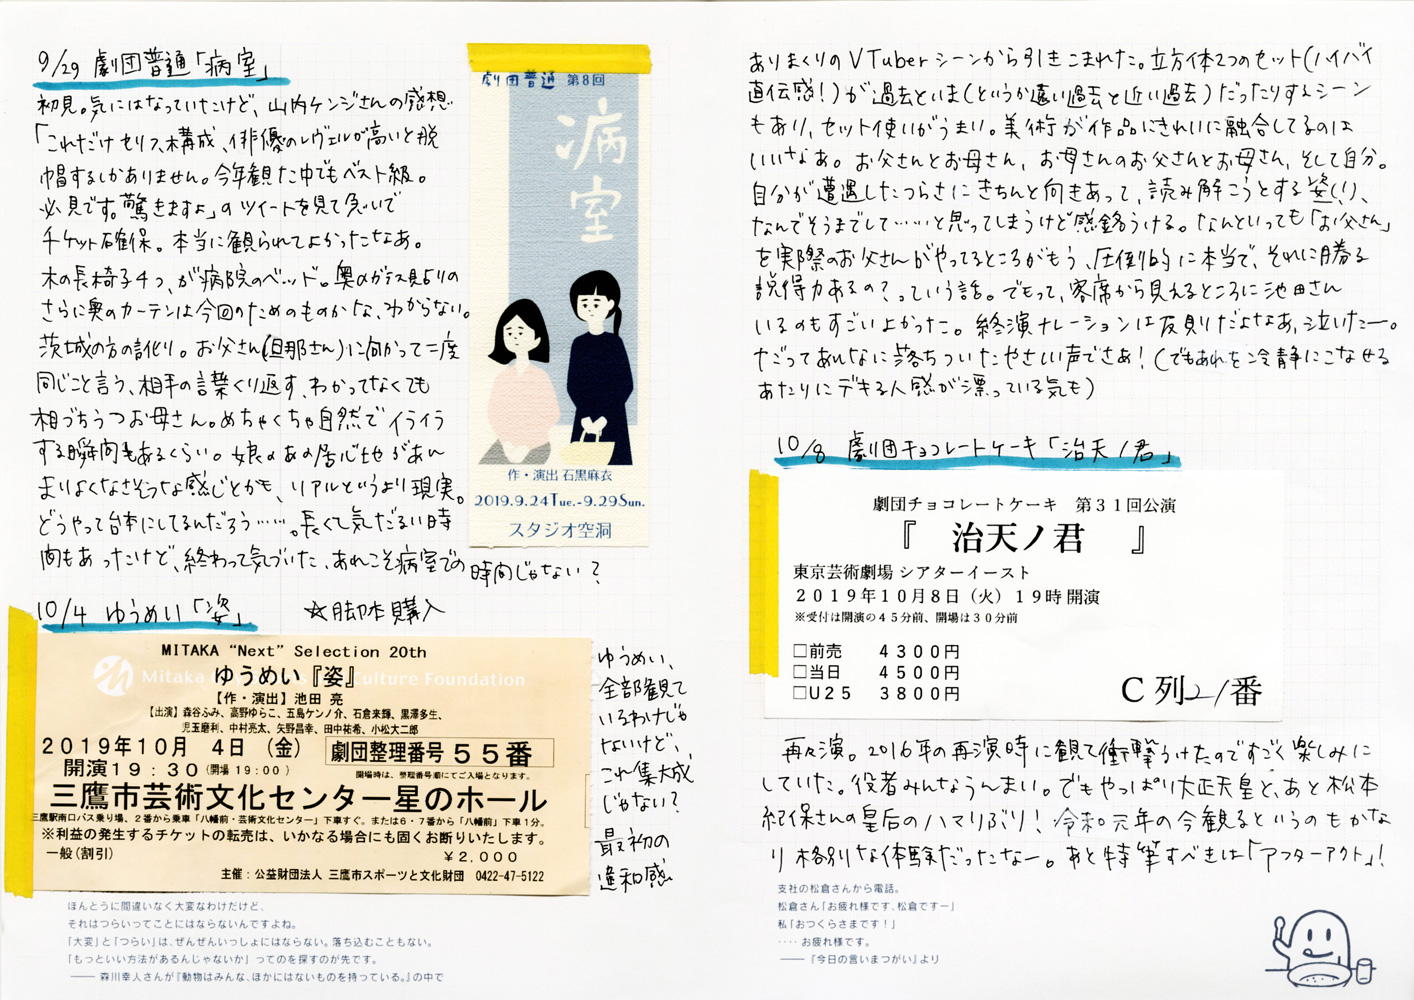 9/29 劇団普通「病室」
初見。気にはなっていたけど、山内ケンジさんの感想
「これだけセリフ、構成、俳優のレヴェルが高いと脱
帽するしかありません。今年観た中でもベスト級。
必見です。驚きますよ」のツイートを見て急いで
チケット確保。本当に観られてよかったなあ。
木の長椅子4つ、が病院のベッド。奥のガラス見切りの
さらに奥のカーテンは今回のためのものかな、わからない。
茨城の方の訛り。お父さん(旦那さん)に向かって二度
同じこと言う、相手の言葉くり返す、わかってなくても
相づちうつお母さん。めちゃくちゃ自然でイライラ
する瞬間もあるくらい。娘のあの居心地があん
まりよくなさそうな感じとかも、リアルというより現実。
どうやって台本にしてるんだろう……。長くて気だるい時
間もあったけど、終わって気づいた、あれこそ病室での時間じゃない?
劇団普通 第8回
病室
作・演出 石黒麻衣
2019.9.24Tue.-9.29Sun.
スタジオ空洞
10/4 ゆうめい「姿」 ☆脚本購入
MITAKA “Next” Selection 20th
ゆうめい『姿』
Mitaka Culture Foundation
【作・演出】池田 亮
【出演】森谷ふみ、高野ゆらこ、五島ケンノ介、石倉来輝、黒澤多生、
児玉磨利、中村亮太、矢野昌幸、田中祐希、小松大二郎
2019年10月 4日 (金) 劇団整理番号 55番
開演19:30(開場 19:00) 開場時は、整理番号順にてご入場となります。
三鷹市芸術文化センター星のホール
三鷹駅南口バス乗り場、2番から乗車「八幡前・芸術文化センター」下車すぐ。または6・7番から「八幡前」下車1分。
※利益の発生するチケットの転売は、いかなる場合にも固くお断りいたします。
一般(割引) ¥2,000
主催:公益財団法人 三鷹市スポーツと文化財団 0422-47-5122
ゆうめい、
全部観て
いるわけじゃ
ないけど、
これ集大成
じゃない?
最初の
違和感
ほんとうに間違いなく大変なわけだけど、
それはつらいってことにはならないんですよね。
「大変」と「つらい」は、ぜんぜんいっしょにはならない。落ち込むこともない。
「もっといい方法があるんじゃないか」 ってのを探すのが先です。
—— 森川幸人さんが『動物はみんな、ほかにはないものを持っている。』の中で
ありまくりのVTuberシーンから引きこまれた。立方体2つのセット(ハイバイ
直伝感!)が過去といま(というか遠い過去と近い過去)だったりするシーン
もあり、セット使いがうまい。美術が作品にきれいに融合してるのは
いいなあ。お父さんとお母さん、お母さんのお父さんとお母さん、そして自分。
自分が遭遇したつらさにきちんと向きあって、読み解こうとする姿(!)、
なんでそうまでして……と思ってしまうけど感銘うける。なんといっても「お父さん」
を実際のお父さんがやってるところがもう、圧倒的に本当で、それに勝る
説得力あるの?っていう話。でもって、客席から見えるところに池田さん
いるのもすごいよかった。終演ナレーションは反則だよなあ、泣いたー。
だってあんなに落ちついたやさしい声でさあ!(でもあれを冷静にこなせる
あたりにデキる人感が漂っている気も)
10/8 劇団チョコレートケーキ「治天ノ君」
劇団チョコレートケーキ 第31回公演
『 治天ノ君 』
東京芸術劇場 シアターイースト
2019年10月8日(火)19時開演
※受付は開演の45分前、開場は30分前
□前売 4300円
□当日 4500円
□U25 3800円
C 列 21 番
再々演。2016年の再演時に観て衝撃うけたのですごく楽しみに
していた。役者みんなうんまい。でもやっぱり大正天皇と、あと松本
紀保さんの皇后のハマりぶり!令和元年の今観るというのもかな
り格別な体験だったなー。あと特筆すべきは「アフターアクト」!
支社の松倉さんから電話。
松倉さん「お疲れ様です、松倉ですー」
私「おつくらさまです!」
‥‥お疲れ様です。
——『今日の言いまつがい』より